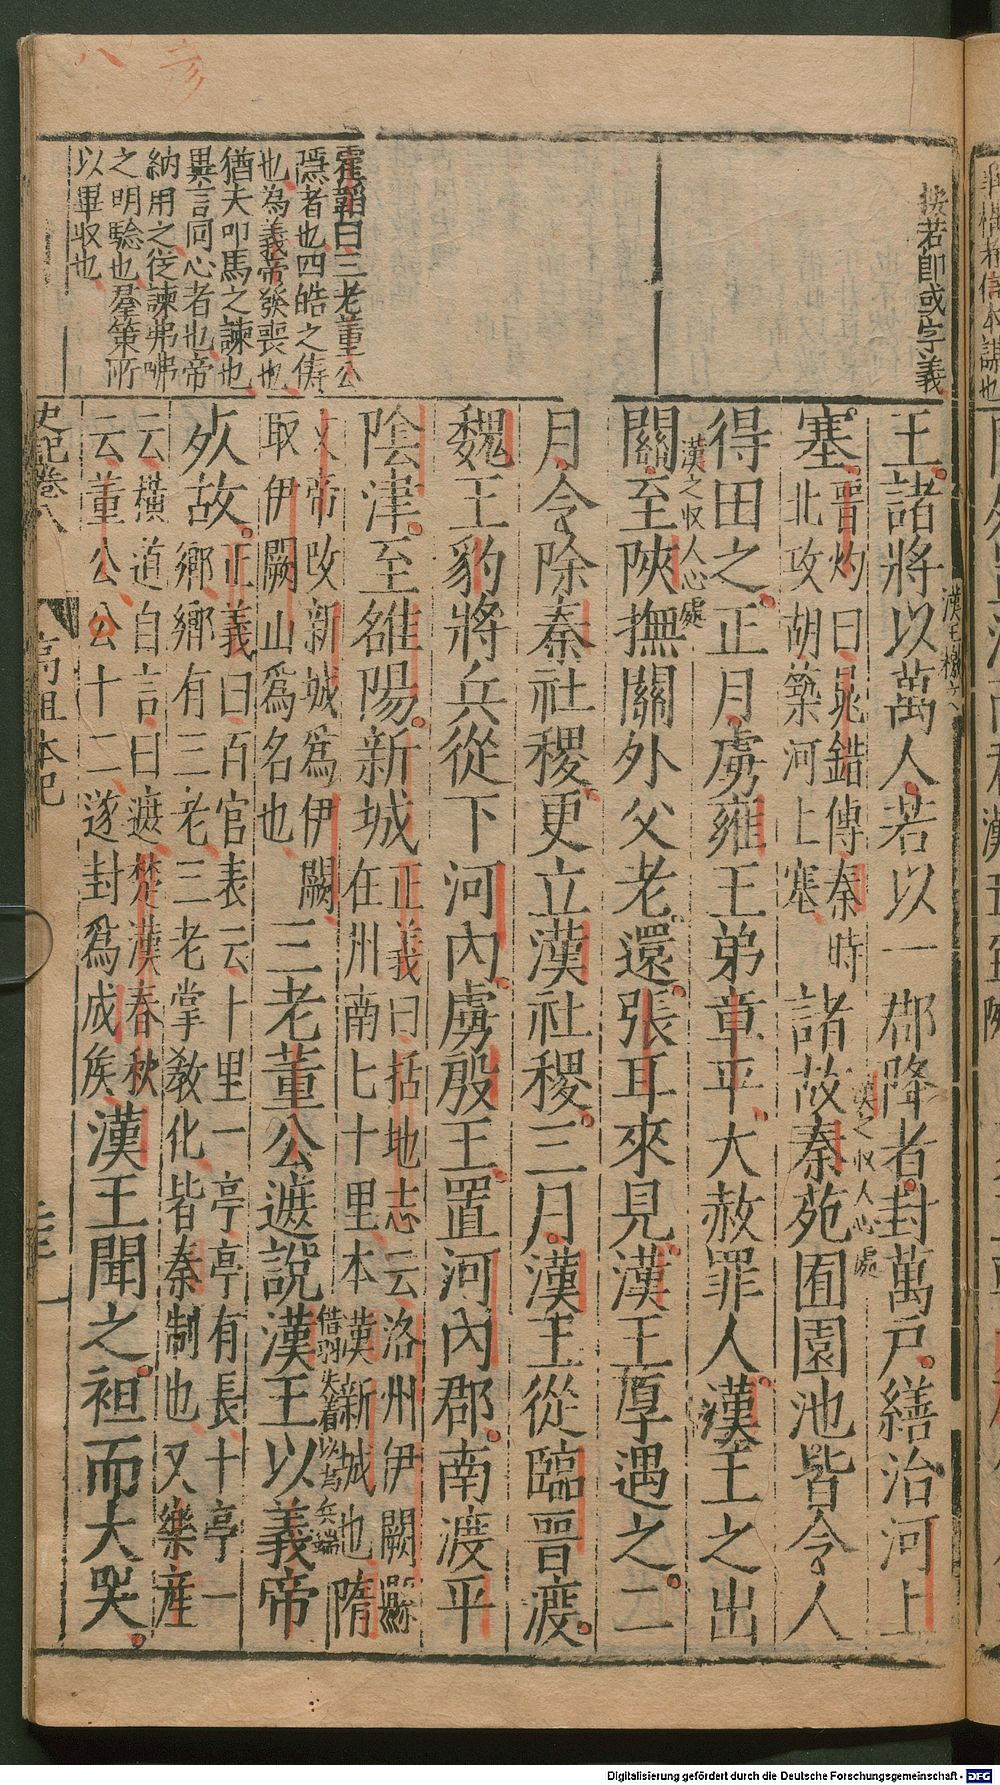 八 彥
按若卽或字義
霍韜曰三老董公
隱者也四皓之儔
也為義帝發喪也
猶夫叩馬之諫也
異言同心者也帝
納用之從諫弗咈
之明驗也羣策所
以畢収也
王諸將以萬人若以一郡降者封萬戶繕治河上
漢之収人心處
塞晉灼曰晁錯傳秦時
北攻胡築河上塞
諸故秦苑囿園池皆令人
得田之正月虜雍王弟章平大赦罪人漢王之出
漢之収人心處
關至陝撫關外父老還張耳來見漢王厚遇之二
月令除秦社稷更立漢社稷三月漢王從臨晉渡
魏王豹將兵從下河內虜殷王置河內郡南渡平
陰津至雒陽新城
正義曰括地志云洛州伊闕縣
在州南七十里本漢新城也隋
文帝改新城爲伊闕
取伊闕山爲名也
三老董公遮說漢王以義帝
借羽失着以爲兵端
死故
正義曰百官表云十里一亭亭有長十亭一
鄉鄉有三老三老掌教化皆秦制也又樂產
云橫道自言曰遮楚漢春秋
云董公公十二遂封爲成矦
漢王聞之袒而大哭
史記卷八
高祖本紀
Digitalisierung gefördert durch die Deutsche Forschungsgemeinschaft - DFG